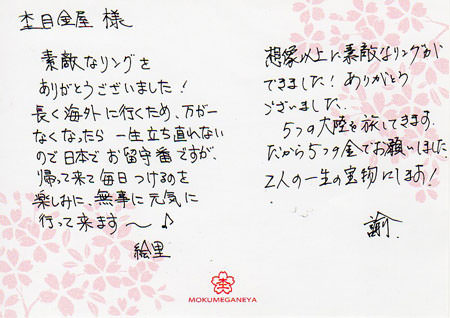 杢目金屋 様
素敵なリングを
ありがとうございました！
長く海外に行くため、万が一
なくなったら 一生立ち直れない
ので日本で お留守番ですが、
帰って来て毎日つけるのを
楽しみに、無事に元気に
行って来ます〜♪
絵里
想像以上に素敵なリングが
できました！ありがとう
ございました.
5つの大陸を旅してきます.
だから5つの金でお願いしました.
2人の一生の宝物にします！
諭.
MOKUMEGANEYA